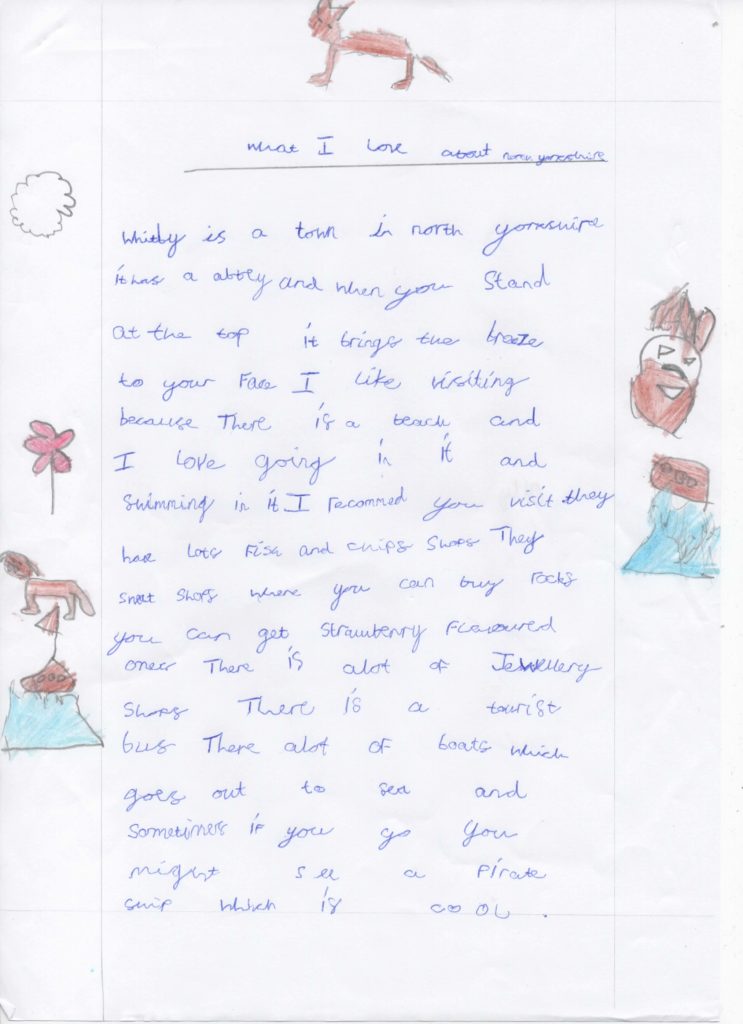 what I love about north yorkshire
Whitby is a town in north yorkshire
it has a abbey and when you Stand
at the top it brings the breeze
to your Face I like visiting
because There is a beach and
I love going in it and
Swimming in it I recommed you visit they
have lots Fish and chips Shops They
Shops where you can buy rocks
you can get Strawberry Flavoured
ones There is alot of Jewellery
Shops There is a tourist
bus There alot of boats which
goes out to sea and
Sometimes if you go you
might see a pirate
ship which is cool.